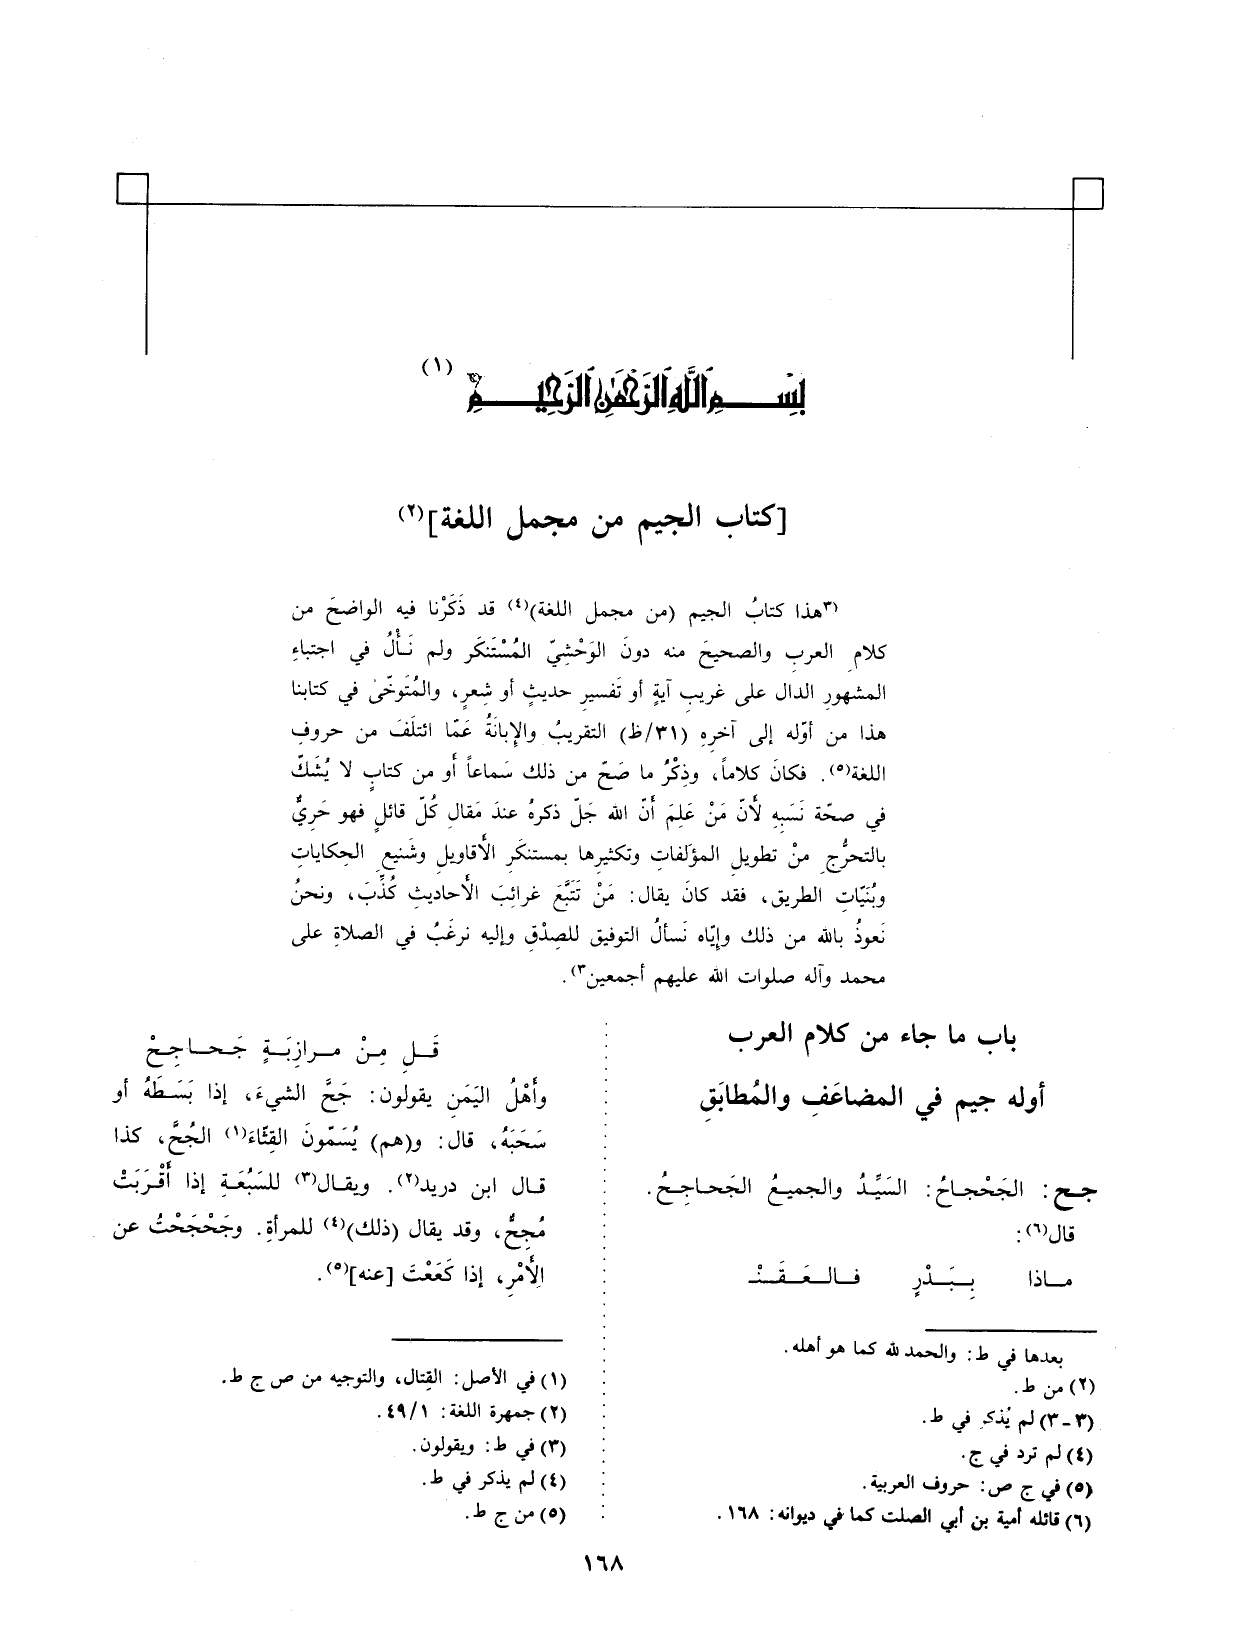 بِسْمِ اللَّهِ الرَّحْمَٰنِ الرَّحِيمِ (١)
[كتاب الجيم من مجمل اللغة](٢)
(٣هذا كتابُ الجيم (من مجمل اللغة)(٤) قد ذَكَرْنا فيه الواضحَ من
كلامِ العربِ والصحيحَ منه دونَ الوَحْشِيّ المُسْتَنكَر ولم نَأْلُ في اجتباءِ
المشهورِ الدال على غريبِ آيةٍ أو تَفسيرِ حديثٍ أو شِعرٍ، والمُتَوخّىٰ في كتابنا
هذا من أوّله إلى آخرِهِ (٣١/ظ) التقريبُ والإبانَةُ عَمّا ائتلَفَ من حروفِ
اللغة(٥). فكانَ كلاماً، وذِكْرُ ما صَحّ من ذلك سَماعاً أو من كتابٍ لا يُشَكّ
في صحّة نَسَبِهِ لأنّ مَنْ عَلِمَ أَنّ الله جَلّ ذكرهُ عندَ مَقالِ كُلّ قائلٍ فهو حَرِيٌّ
بالتحرُّجِ مِنْ تطويلِ المؤلفاتِ وتكثيرها بمستنكَرِ الأقاويلِ وشَنيعِ الحكاياتِ
وبُنَيّاتِ الطريق، فقد كانَ يقال: مَنْ تَتَبَّعَ غرائبَ الأحاديثِ كُذِّبَ، ونحنُ
نَعوذُ بالله من ذلك وإيّاه نَسألُ التوفيق للصِدْقِ وإليه نرغَبُ في الصلاةِ على
محمد وآله صلوات الله عليهم أجمعين٣).
باب ما جاء من كلام العرب
أوله جيم في المضاعَفِ والمُطابَقِ
جح: الجَحْجاحُ: السَيِّدُ والجميعُ الجَحاجِحُ.
قال(٦):
ماذا بِبَدْرٍ فالعَقَنْـ
قَلِ مِنْ مرازِبَةٍ جَحاجِحْ
وأَهْلُ اليَمَنِ يقولون: جَحَّ الشيءَ، إذا بَسَطَهُ أو
سَحَبَهُ، قال: و(هم) يُسَمّونَ القِثّاءَ(١) الجُحَّ، كذا
قال ابن دريد(٢). ويقال(٣) للسَبُعَةِ إذا أَقْرَبَتْ
مُجِحٌّ، وقد يقال (ذلك)(٤) للمرأةِ. وجَحْجَحْتُ عن
الأَمْرِ، إذا كَعَعْتَ [عنه](٥).
بعدها في ط: والحمد لله كما هو أهله.
(٢) من ط.
(٣-٣) لم يُذكر في ط.
(٤) لم ترد في ج.
(٥) في ج ص: حروف العربية.
(٦) قائله أمية بن أبي الصلت كما في ديوانه: ١٦٨.
(١) في الأصل: القِتال، والتوجيه من ص ج ط.
(٢) جمهرة اللغة: ٤٩/١.
(٣) في ط: ويقولون.
(٤) لم يذكر في ط.
(٥) من ج ط.
١٦٨